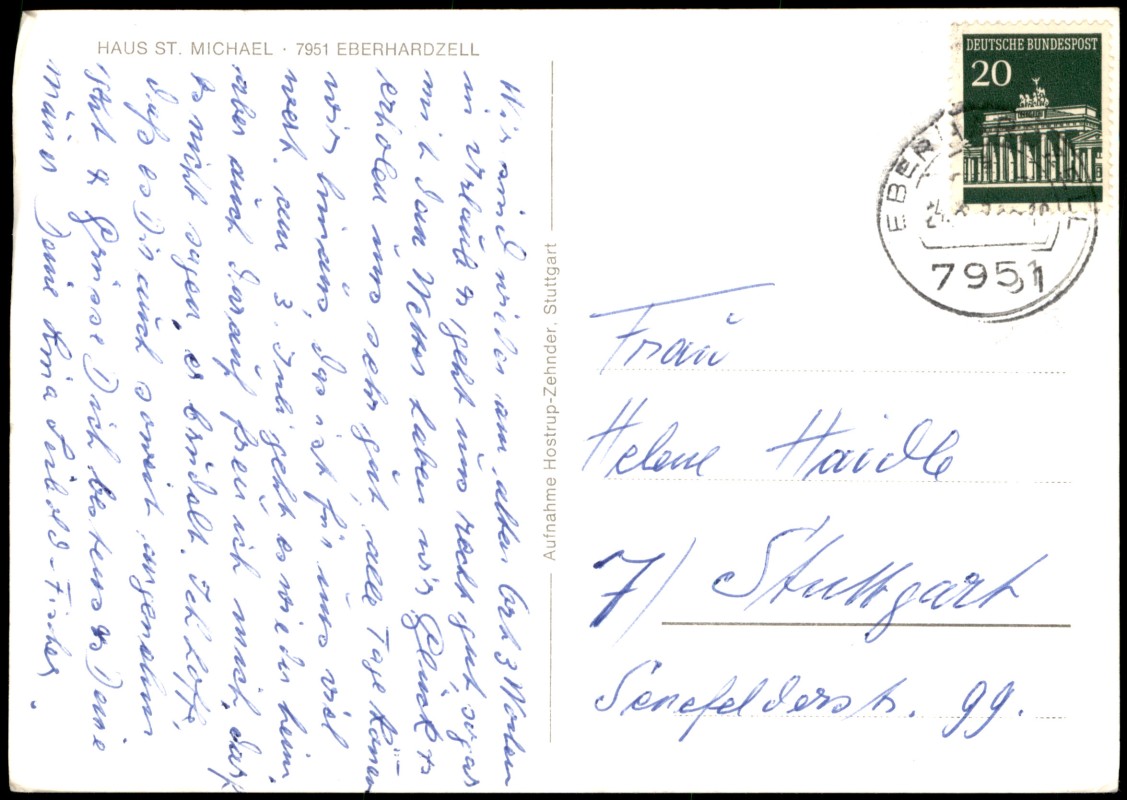 HAUS ST. MICHAEL · 7951 EBERHARDZELL
Wir sind wieder am alten Ort 3 Wochen
in Urlaub es geht uns recht gut, sogar
mit dem Wetter haben wir Glück &
erholen uns sehr gut, alle Tage können
wir hinaus, das ist für uns viel
wert, am 3. Juli geht es wieder heim
aber auch darauf freu ich mich, darf
es nicht sagen, er brudelt. Ich hoffe,
daß es Dir auch soweit angenehm
geht & grüsse Dich bestens & Deine
Männer Deine Lina Seibold-Fischer.
Aufnahme Hostrup-Zehnder, Stuttgart
DEUTSCHE BUNDESPOST
20
7951
Frau
Helene Haidle
7/ Stuttgart
Senefelderstr. 99.